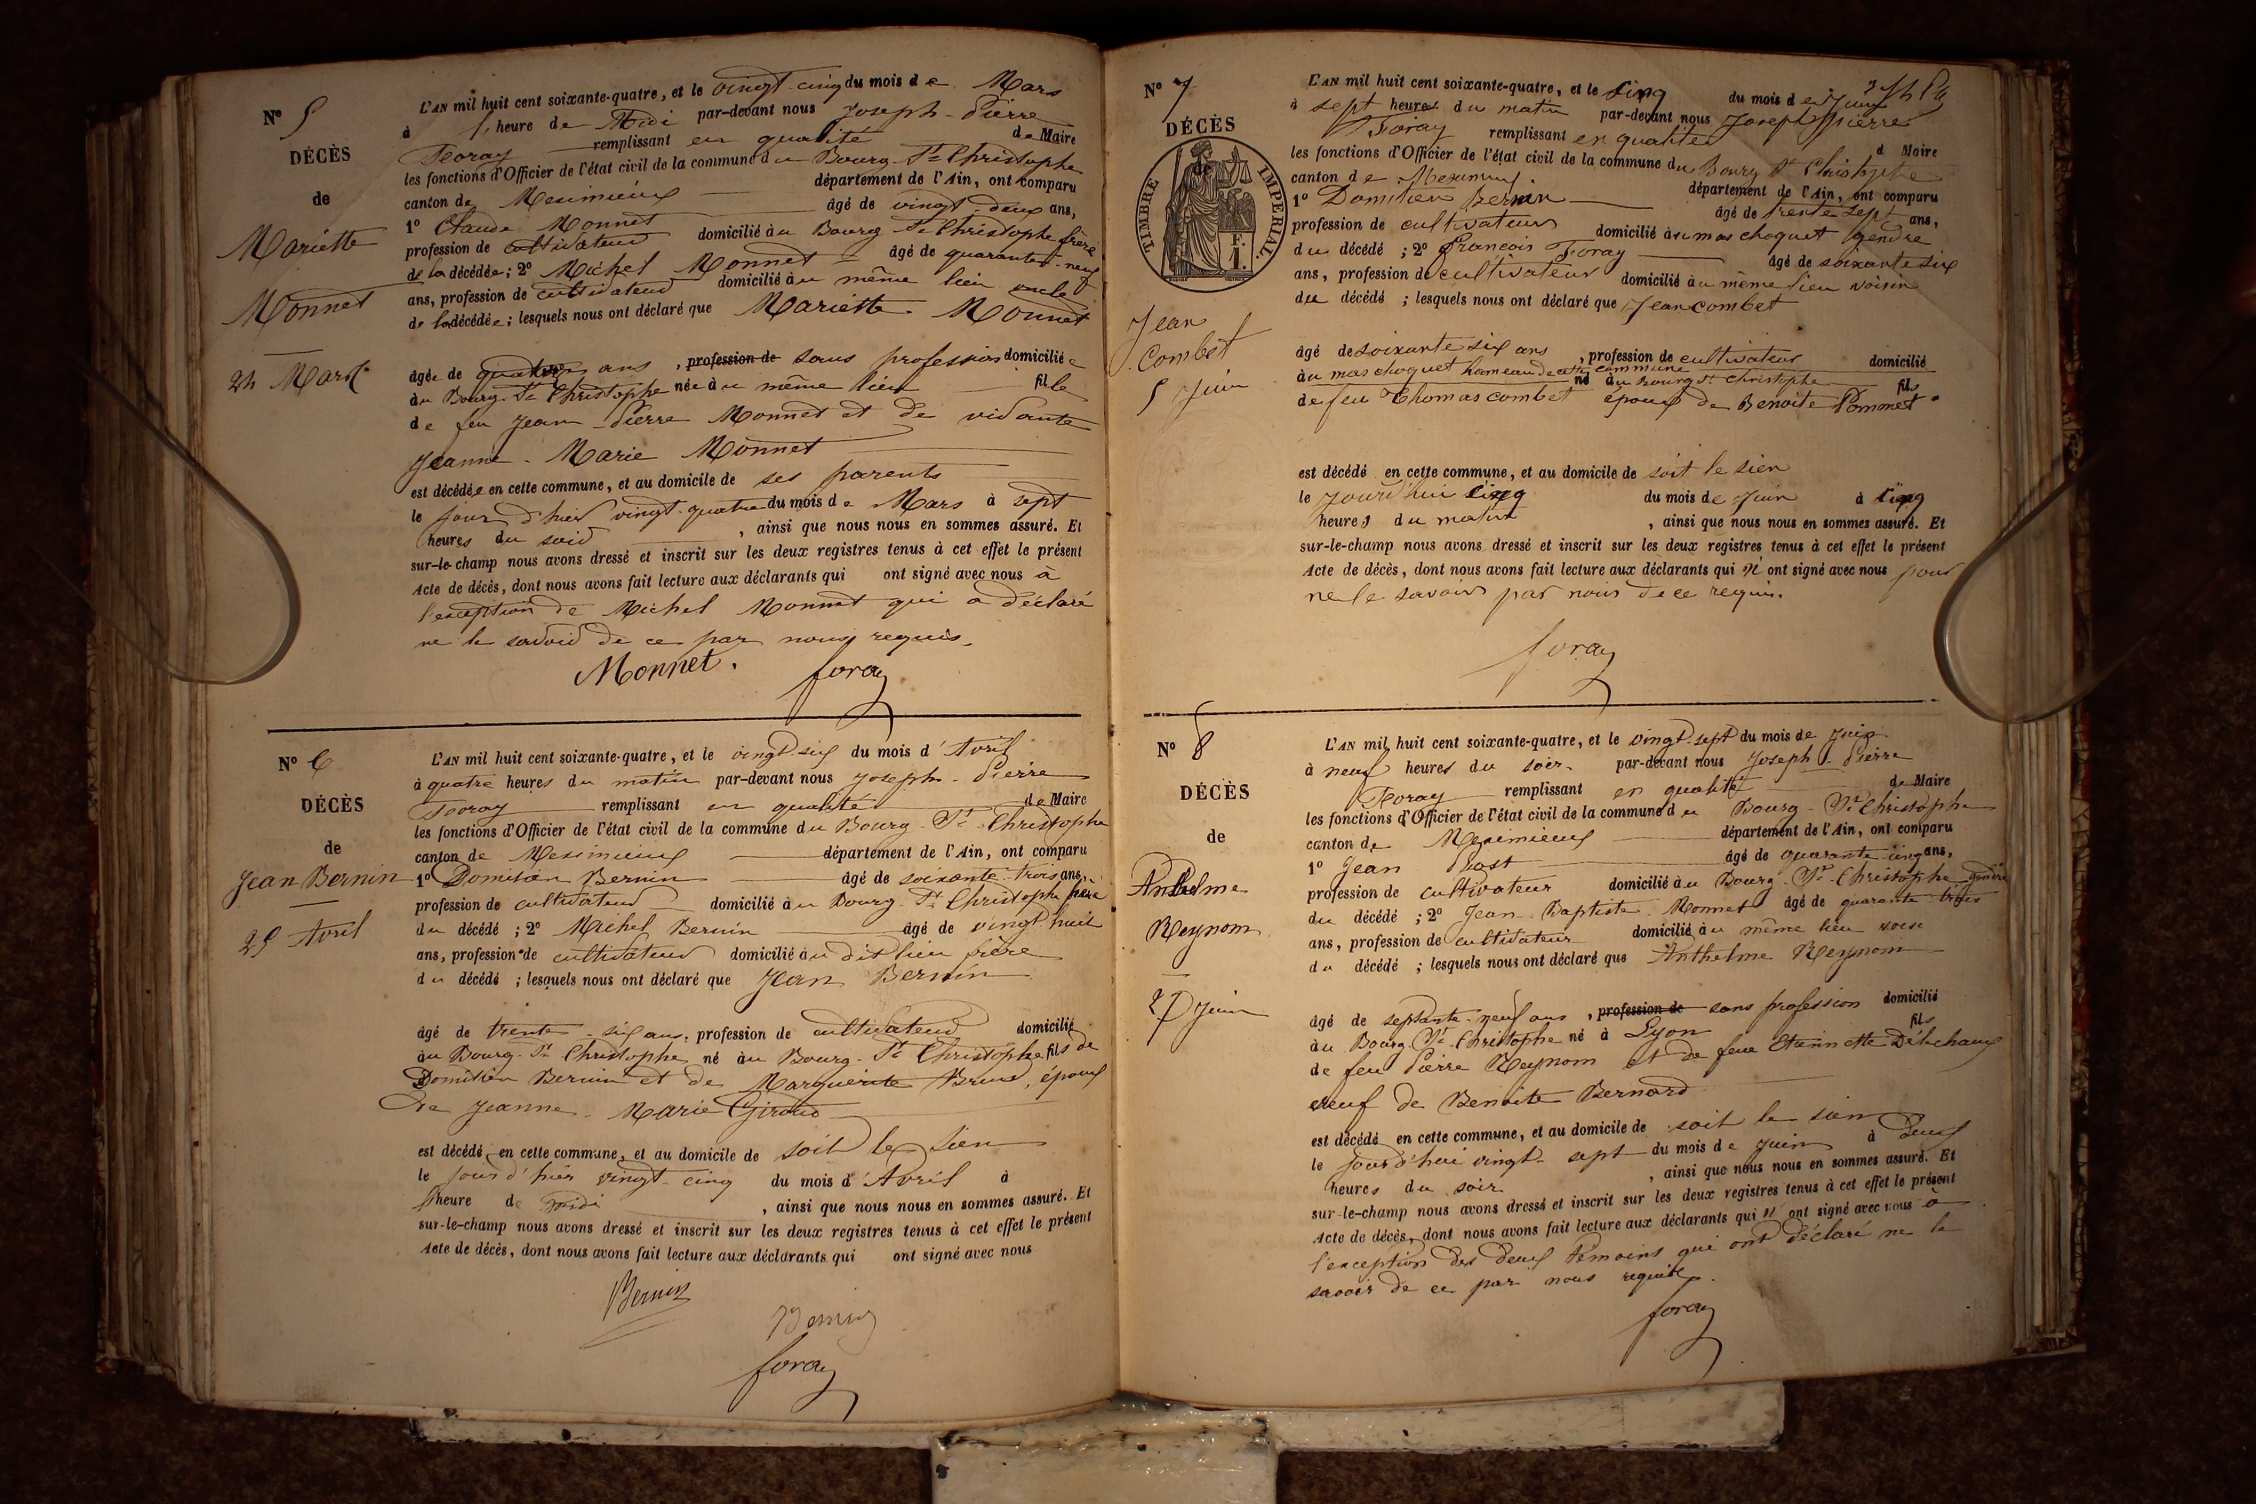 N° 5
DÉCÈS
de
Mariette
Monnet
24 Mars
L'AN mil huit cent soixante-quatre, et le vingt-cinq du mois de Mars
à 1 heure de Midi par-devant nous Joseph-Pierre
Foray remplissant en qualité de Maire
les fonctions d'Officier de l'état civil de la commune du Bourg-St Christophe
canton de Meximieux département de l'Ain, ont comparu
1° Claude Monnet âgé de vingt-deux ans,
profession de cultivateur domicilié au Bourg-St Christophe frère
de la décédée; 2° Michel Monnet âgé de quarante-neuf
ans, profession de cultivateur domicilié au même lieu oncle
de la décédée; lesquels nous ont déclaré que Mariette Monnet
âgée de ans, profession de sans profession domiciliée
au Bourg-St Christophe née au même lieu fille
de feu Jean-Pierre Monnet et de vivante
Jeanne-Marie Monnet
est décédée en cette commune, et au domicile de ses parents
le jour d'hier vingt-quatre du mois de Mars à sept
heures du soir, ainsi que nous nous en sommes assuré. Et
sur-le-champ nous avons dressé et inscrit sur les deux registres tenus à cet effet le présent
Acte de décès, dont nous avons fait lecture aux déclarants qui ont signé avec nous à
l'exception de Michel Monnet qui a déclaré
ne le savoir de ce par nous requis.
Monnet. foray
N° 6
DÉCÈS
de
Jean Bernin
25 Avril
L'AN mil huit cent soixante-quatre, et le vingt-six du mois d'Avril
à quatre heures du matin par-devant nous Joseph-Pierre
Foray remplissant en qualité de Maire
les fonctions d'Officier de l'état civil de la commune du Bourg-St-Christophe
canton de Meximieux département de l'Ain, ont comparu
1° Domitien Bernin âgé de soixante-trois ans,
profession de cultivateur domicilié au Bourg-St Christophe père
du décédé; 2° Michel Bernin âgé de vingt-huit
ans, profession de cultivateur domicilié au dit lieu frère
du décédé; lesquels nous ont déclaré que Jean Bernin
âgé de trente-six ans, profession de cultivateur domicilié
au Bourg-St Christophe né au Bourg-St Christophe fils de
Domitien Bernin et de Marguerite Brun, époux
De Jeanne-Marie Giroud
est décédé en cette commune, et au domicile de soit le sien
le jour d'hier vingt-cinq du mois d'Avril à
1 heure de midi, ainsi que nous nous en sommes assuré. Et
sur-le-champ nous avons dressé et inscrit sur les deux registres tenus à cet effet le présent
Acte de décès, dont nous avons fait lecture aux déclarants qui ont signé avec nous
Bernin
Bernin
foray
N° 7
DÉCÈS
de
TIMBRE IMPERIAL
F. 1.
Jean
Combet
5 Juin
L'AN mil huit cent soixante-quatre, et le cinq du mois de Juin
à sept heures du matin par-devant nous Joseph Pierre
Foray remplissant en qualité d Maire
les fonctions d'Officier de l'état civil de la commune du Bourg St Christophe
canton de Meximieux département de l'Ain, ont comparu
1° Domitien Bernin âgé de trente sept ans,
profession de cultivateur domicilié au mas choquet gendre
du décédé; 2° françois Foray âgé de soixante six
ans, profession de cultivateur domicilié au même lieu voisin
du décédé; lesquels nous ont déclaré que Jean combet
âgé de soixante six ans, profession de cultivateur domicilié
au mas choquet hameau de cette commune né au Bourg St christophe fils
de feu Thomas combet époux de Benoite Pomonet
est décédé en cette commune, et au domicile de soit le sien
le jourd'hui cinq du mois de Juin à cinq
heures du matin, ainsi que nous nous en sommes assuré. Et
sur-le-champ nous avons dressé et inscrit sur les deux registres tenus à cet effet le présent
Acte de décès, dont nous avons fait lecture aux déclarants qui n'ont signé avec nous pour
ne le savoir par nous de ce requis.
foray
N° 8
DÉCÈS
de
Anthelme
Reynom
27 Juin
L'AN mil huit cent soixante-quatre, et le vingt-sept du mois de Juin
à neuf heures du soir par-devant nous Joseph-Pierre
Foray remplissant en qualité de Maire
les fonctions d'Officier de l'état civil de la commune du Bourg-St Christophe
canton de Meximieux département de l'Ain, ont comparu
1° Jean Post âgé de quarante cinq ans,
profession de cultivateur domicilié au Bourg-St-Christophe gendre
du décédé; 2° Jean-Baptiste Monnet âgé de quarante-trois
ans, profession de cultivateur domicilié au même lieu voisin
du décédé; lesquels nous ont déclaré que Anthelme Reynom
âgé de septante-neuf ans, profession de sans profession domicilié
au Bourg-St-Christophe né à Lyon fils
de feu Pierre Reynom et de feue Etiennette
veuf de Benoite Bernard
est décédé en cette commune, et au domicile de soit le sien
le jour d'hui vingt-sept du mois de Juin à deux
heures du soir, ainsi que nous nous en sommes assuré. Et
sur-le-champ nous avons dressé et inscrit sur les deux registres tenus à cet effet le présent
Acte de décès, dont nous avons fait lecture aux déclarants qui n'ont signé avec nous à
l'exception des deux témoins qui ont déclaré ne le
savoir de ce par nous requis.
foray